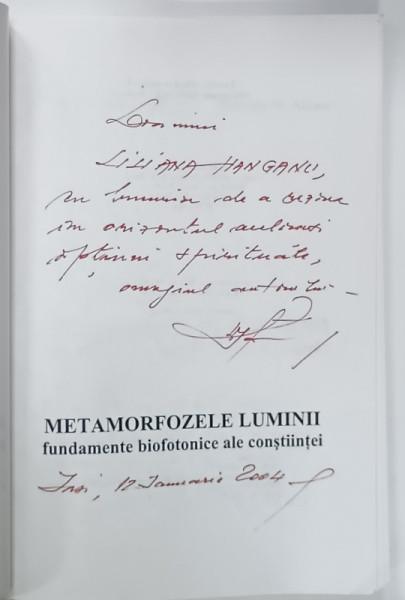 Doamnei
LILIANA HANGANU,
cu bucuria de a vedea
în orizontul aceleiași
spirituale,
omagiul autorului –
METAMORFOZELE LUMINII
fundamente biofotonice ale conștiinței
Iași, 12 Ianuarie 2004